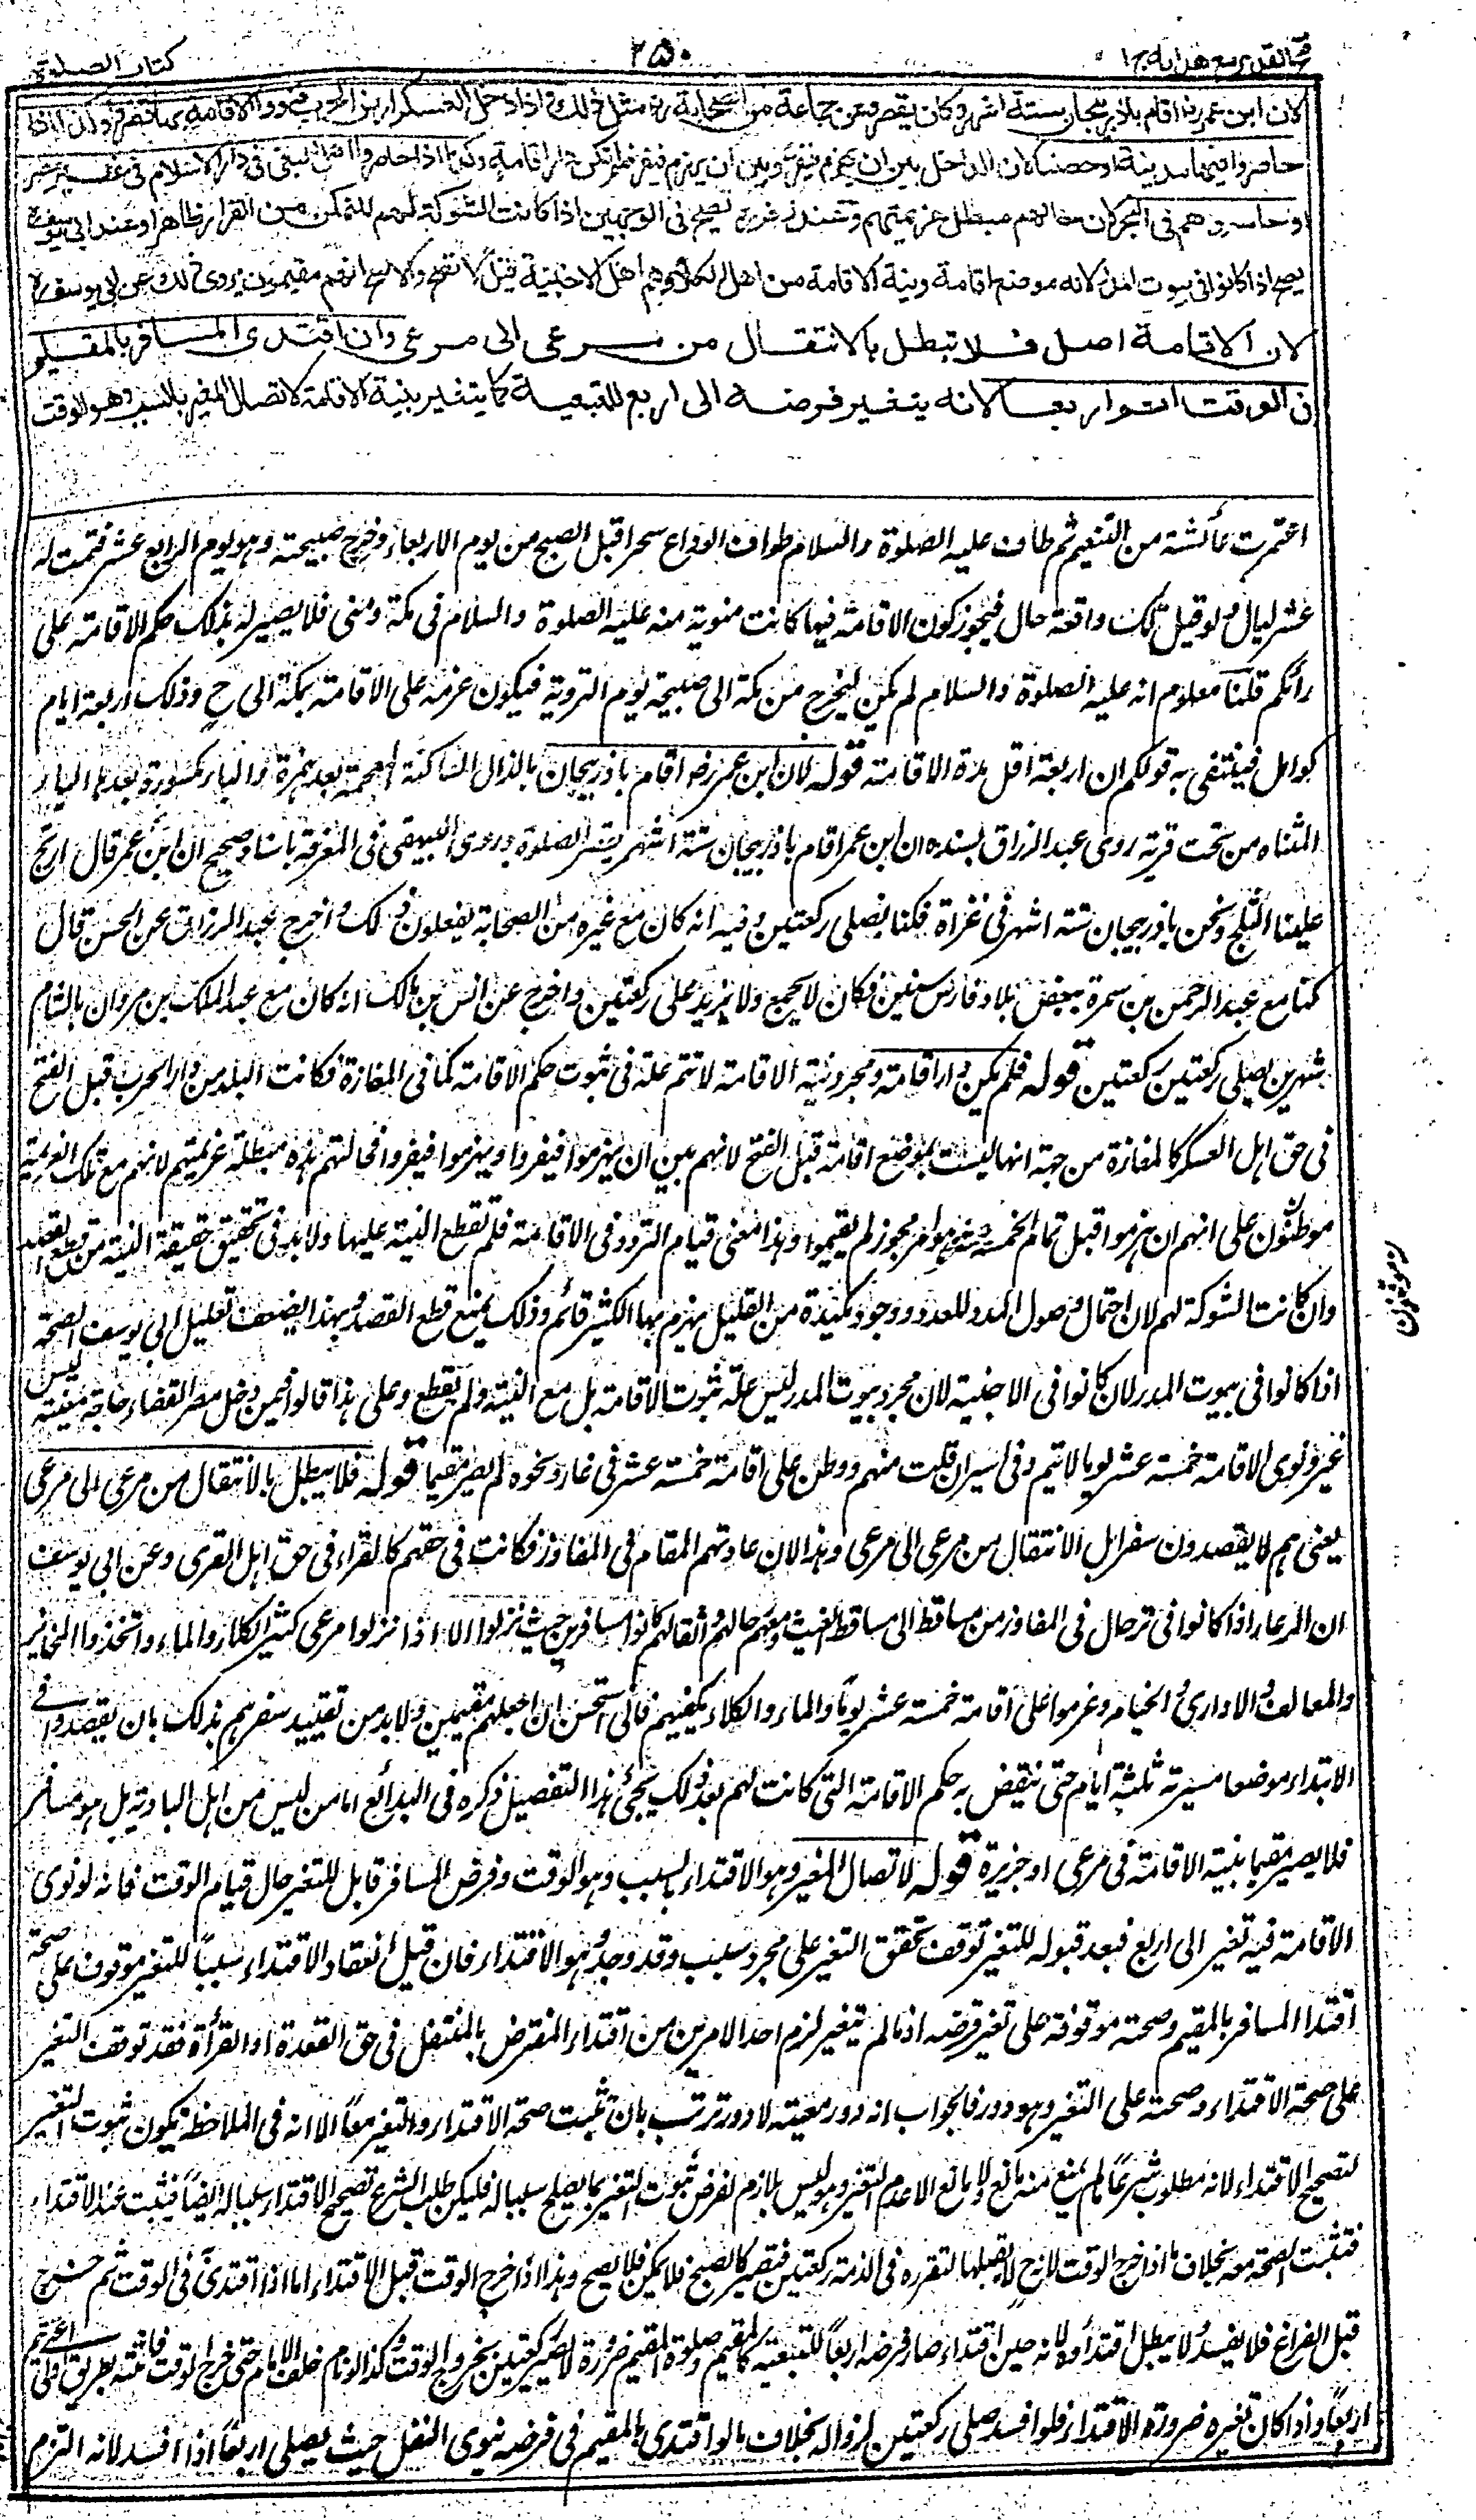 فتح القدير مع هدايه ج١ ٢٥٠ كتاب الصلوة
لان ابن عمر رضـ اقام باذربيجان ستة اشهر وكان يقصر وعن جماعة من الصحابة رضـ مثل ذلك واذا دخل العسكر ارض الحرب فنووا الاقامة بها قصروا وكذا اذا
حاصروا فيها مدينة او حصنا لان الداخل بين ان يهزم فيقر وبين ان يهزم فيفر فلم تكن دار اقامة وكذا اذا حاصروا اهل البغي في دار الاسلام في غير مصر
او حاصروهم في البحر لان حالهم مبطل عزيمتهم وعند زفر يصح في الوجهين اذا كانت الشوكة لهم للتمكن من القرار ظاهرا وعند ابي يوسف
يصح اذا كانوا في بيوت المدر لانه موضع اقامة ونية الاقامة من اهل الكلاء وهم اهل الاخبية قيل لا تصح والاصح انهم مقيمون يروى ذلك عن ابي يوسف
لان الاقامة اصل فلا تبطل بالانتقال من مرعى الى مرعى وان اقتدى المسافر بالمقيم
في الوقت اتم اربعا لانه يتغير فرضه الى اربع للتبعية كما يتغير بنية الاقامة لاتصال المغير بالسبب وهو الوقت
اعتمرت عائشة من التنعيم ثم طاف عليه الصلوة والسلام طواف الوداع سحرا قبل الصبح من يوم الاربعاء وخرج صبيحته وهو يوم الرابع عشر فتمت له
عشر ليال ولو قيل تلك واقعة حال فيجوز كون الاقامة فيها كانت منوية منه عليه الصلوة والسلام في مكة ومنى فلا يصير له بذلك حكم الاقامة على
رأيكم قلنا معلوم انه عليه الصلوة والسلام لم يكن ليخرج من مكة الى صبيحة يوم التروية فيكون عزمه على الاقامة بمكة الى ح وذلك اربعة ايام
كوامل فينتفى به قولكم ان اربعة اقل مدة الاقامة قوله لان ابن عمر رضـ اقام باذربيجان بالذال الساكنة المعجمة بعد همزة والباء مكسورة بعدها الياء
المثناة من تحت قرية روى عبد الرزاق بسنده ان ابن عمر اقام باذربيجان ستة اشهر يقصر الصلوة وروى البيهقي في المعرفة باسناد صحيح ان ابن عمر قال ارتج
علينا الثلج ونحن باذربيجان ستة اشهر في غزاة فكنا نصلي ركعتين وفيه انه كان مع غيره من الصحابة يفعلون ذلك واخرج عبد الرزاق عن الحسن قال
كنا مع عبد الرحمن بن سمرة ببعض بلاد فارس سنين فكان لا يجمع ولا يزيد على ركعتين واخرج عن انس بن مالك انه كان مع عبد الملك بن مروان بالشام
شهرين يصلي ركعتين ركعتين قوله فلم يكن دار اقامة ومجرد نية الاقامة لا تتم علة في ثبوت حكم الاقامة كما في المفازة فكانت البلد من دار الحرب قبل الفتح
في حق اهل العسكر كالمفازة من جهة انها ليست بموضع اقامة قبل الفتح لانهم بين ان يهزموا فيقروا او يهزموا فيفروا فحالتهم هذه مبطلة عزيمتهم لانهم مع تلك العزيمة
موطنون على انهم ان هزموا قبل تمام الخمسة عشر وهو امر مجوز لم يقيموا وهذا معنى قيام التردد في الاقامة فلم تقطع النية عليها ولا بد في تحقيق حقيقة النية من قطع القصد
وان كانت الشوكة لهم لان احتمال وصول المدد للعدو ووجود مكيدة من القليل يهزم بها الكثير قائم وذلك يمنع قطع القصد وبهذا يضعف تعليل ابي يوسف الصحة
اذا كانوا في بيوت المدر لا ان كانوا في الاخبية لان مجرد بيوت المدر ليس علة ثبوت الاقامة بل مع النية ولم يقطع وعلى هذا قالوا فيمن دخل مصرا لقضاء حاجة معينة ليس
غير ونوى الاقامة خمسة عشر يوما لا يتم وفي اسير انفلت منهم ووطن على اقامة خمسة عشر في غار ونحوه لم يصر مقيما قوله فلا يبطل بالانتقال من مرعى الى مرعى
يعني هم لا يقصدون سفرا بل الانتقال من مرعى الى مرعى وهذا لان عادتهم المقام في المفاوز فكانت في حقهم كالقرى في حق اهل القرى وعن ابي يوسف
ان الرعاء اذا كانوا في ترحال في المفاوز من مساقط الى مساقط الغيث ومعهم رحالهم واثقالهم كانوا مسافرين حيث نزلوا الا اذا نزلوا مرعى كثير الكلاء والماء واتخذوا المخابز
والمعالف والاواري والخيام وعزموا على اقامة خمسة عشر يوما والماء والكلاء يكفيهم فاني استحسن ان اجعلهم مقيمين ولا بد من تقييد سفرهم بذلك بان يقصدوا في
الابتداء موضعا مسيرته ثلثة ايام حتى ينتقض به حكم الاقامة التي كانت لهم بعد ذلك يجئ هذا التفصيل ذكره في البدائع اما من ليس من اهل البادية بل هو مسافر
فلا يصير مقيما بنية الاقامة في مرعى او جزيرة قوله لاتصال المغير وهو الاقتداء بالسبب وهو الوقت وفرض المسافر قابل للتغير حال قيام الوقت فانه لو نوى
الاقامة فيه تغير الى اربع فبعد قبوله للتغير توقف تحقق التغير على مجرد سبب وقد وجد وهو الاقتداء فان قيل انعقاد الاقتداء سببا للتغير موقوف على صحة
اقتداء المسافر بالمقيم وصحته موقوفة على تغير فرضه اذ ما لم يتغير لزم احد الامرين من اقتداء المفترض بالمتنفل في حق القعدة او القرأة فقد توقف التغير
على صحة الاقتداء وصحته على التغير وهو دور فالجواب انه دور معية لا دور ترتب بان تثبت صحة الاقتداء والتغير معا الا انه في الملاحظة يكون ثبوت التغير
لتصحيح الاقتداء لانه مطلوب شرعا ما لم يمنع منه مانع ولا مانع الا عدم التغير وهو ليس بلازم لفرض ثبوت التغير بما يصلح سببا له فليكن طلب الشرع تصحيح الاقتداء سببا له ايضا فيثبت عند الاقتداء
فتثبت الصحة معه بخلاف ما اذا خرج الوقت لانه ح لا يقبلها لتقرره في الذمة ركعتين فتصير كالصبح فلا يمكن فلا يصح وهذا اذا خرج الوقت قبل الاقتداء اما اذا اقتدى في الوقت ثم خرج
قبل الفراغ فلا يفسد ولا يبطل اقتداؤه لانه حين اقتداء صار فرضه اربعا للتبعية كالمقيم وصلوة المقيم ضرورة لا تصير ركعتين بخروج الوقت وكذا لو نام خلف الامام حتى خرج الوقت فانتبه بطريق اولى يتم
اربعا واذا كان تغيره ضرورة الاقتداء فلو افسد صلى ركعتين لزواله بخلاف ما لو اقتدى بالمقيم في فرضه ينوي النفل حيث يصلي اربعا اذا افسد لانه التزم